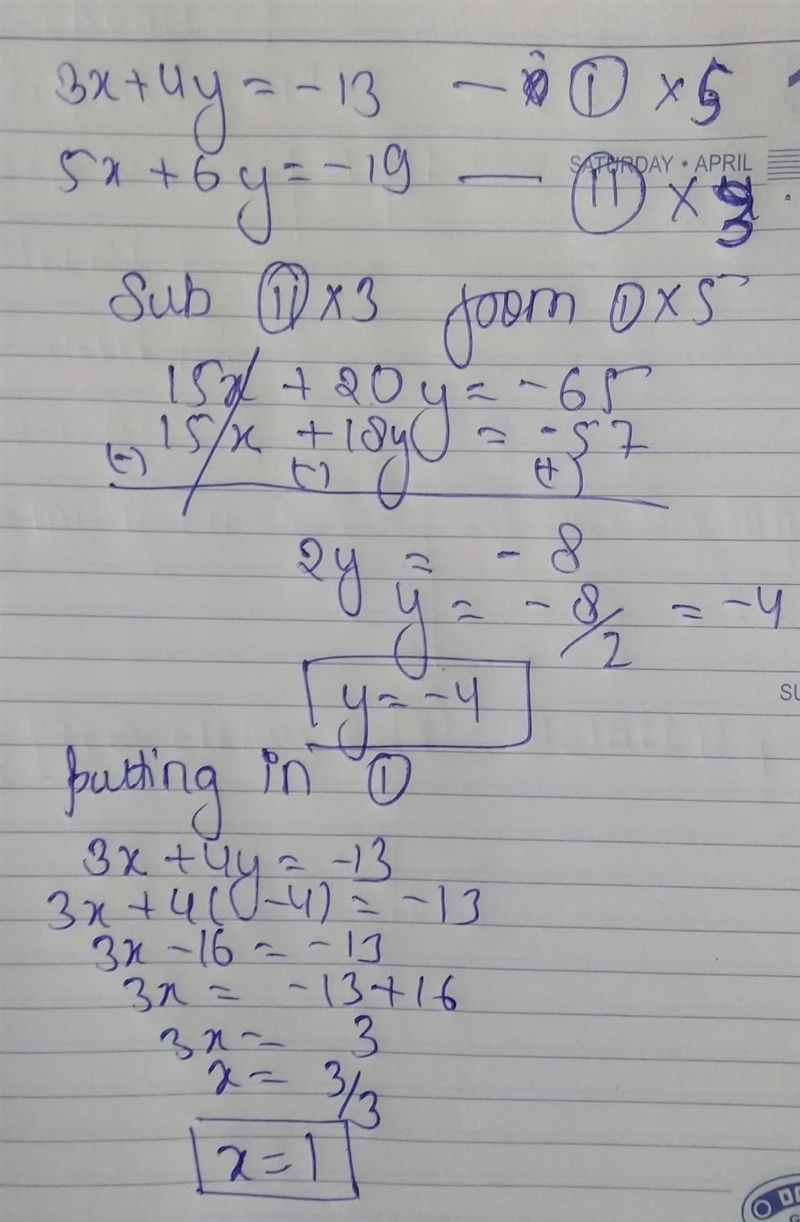 3x + 4y = -13 — ① × 5
SATURDAY • APRIL
5x + 6y = -19 — ⑪ × 3
Sub ⑪ × 3 from ① × 5
15x + 20y = -65
15x + 18y = -57
(-) (-) (+)
2y = - 8
y = - 8/2 = -4
SU
y = -4
putting in ①
3x + 4y = -13
3x + 4(-4) = -13
3x - 16 = -13
3x = -13 + 16
3x = 3
x = 3/3
x = 1